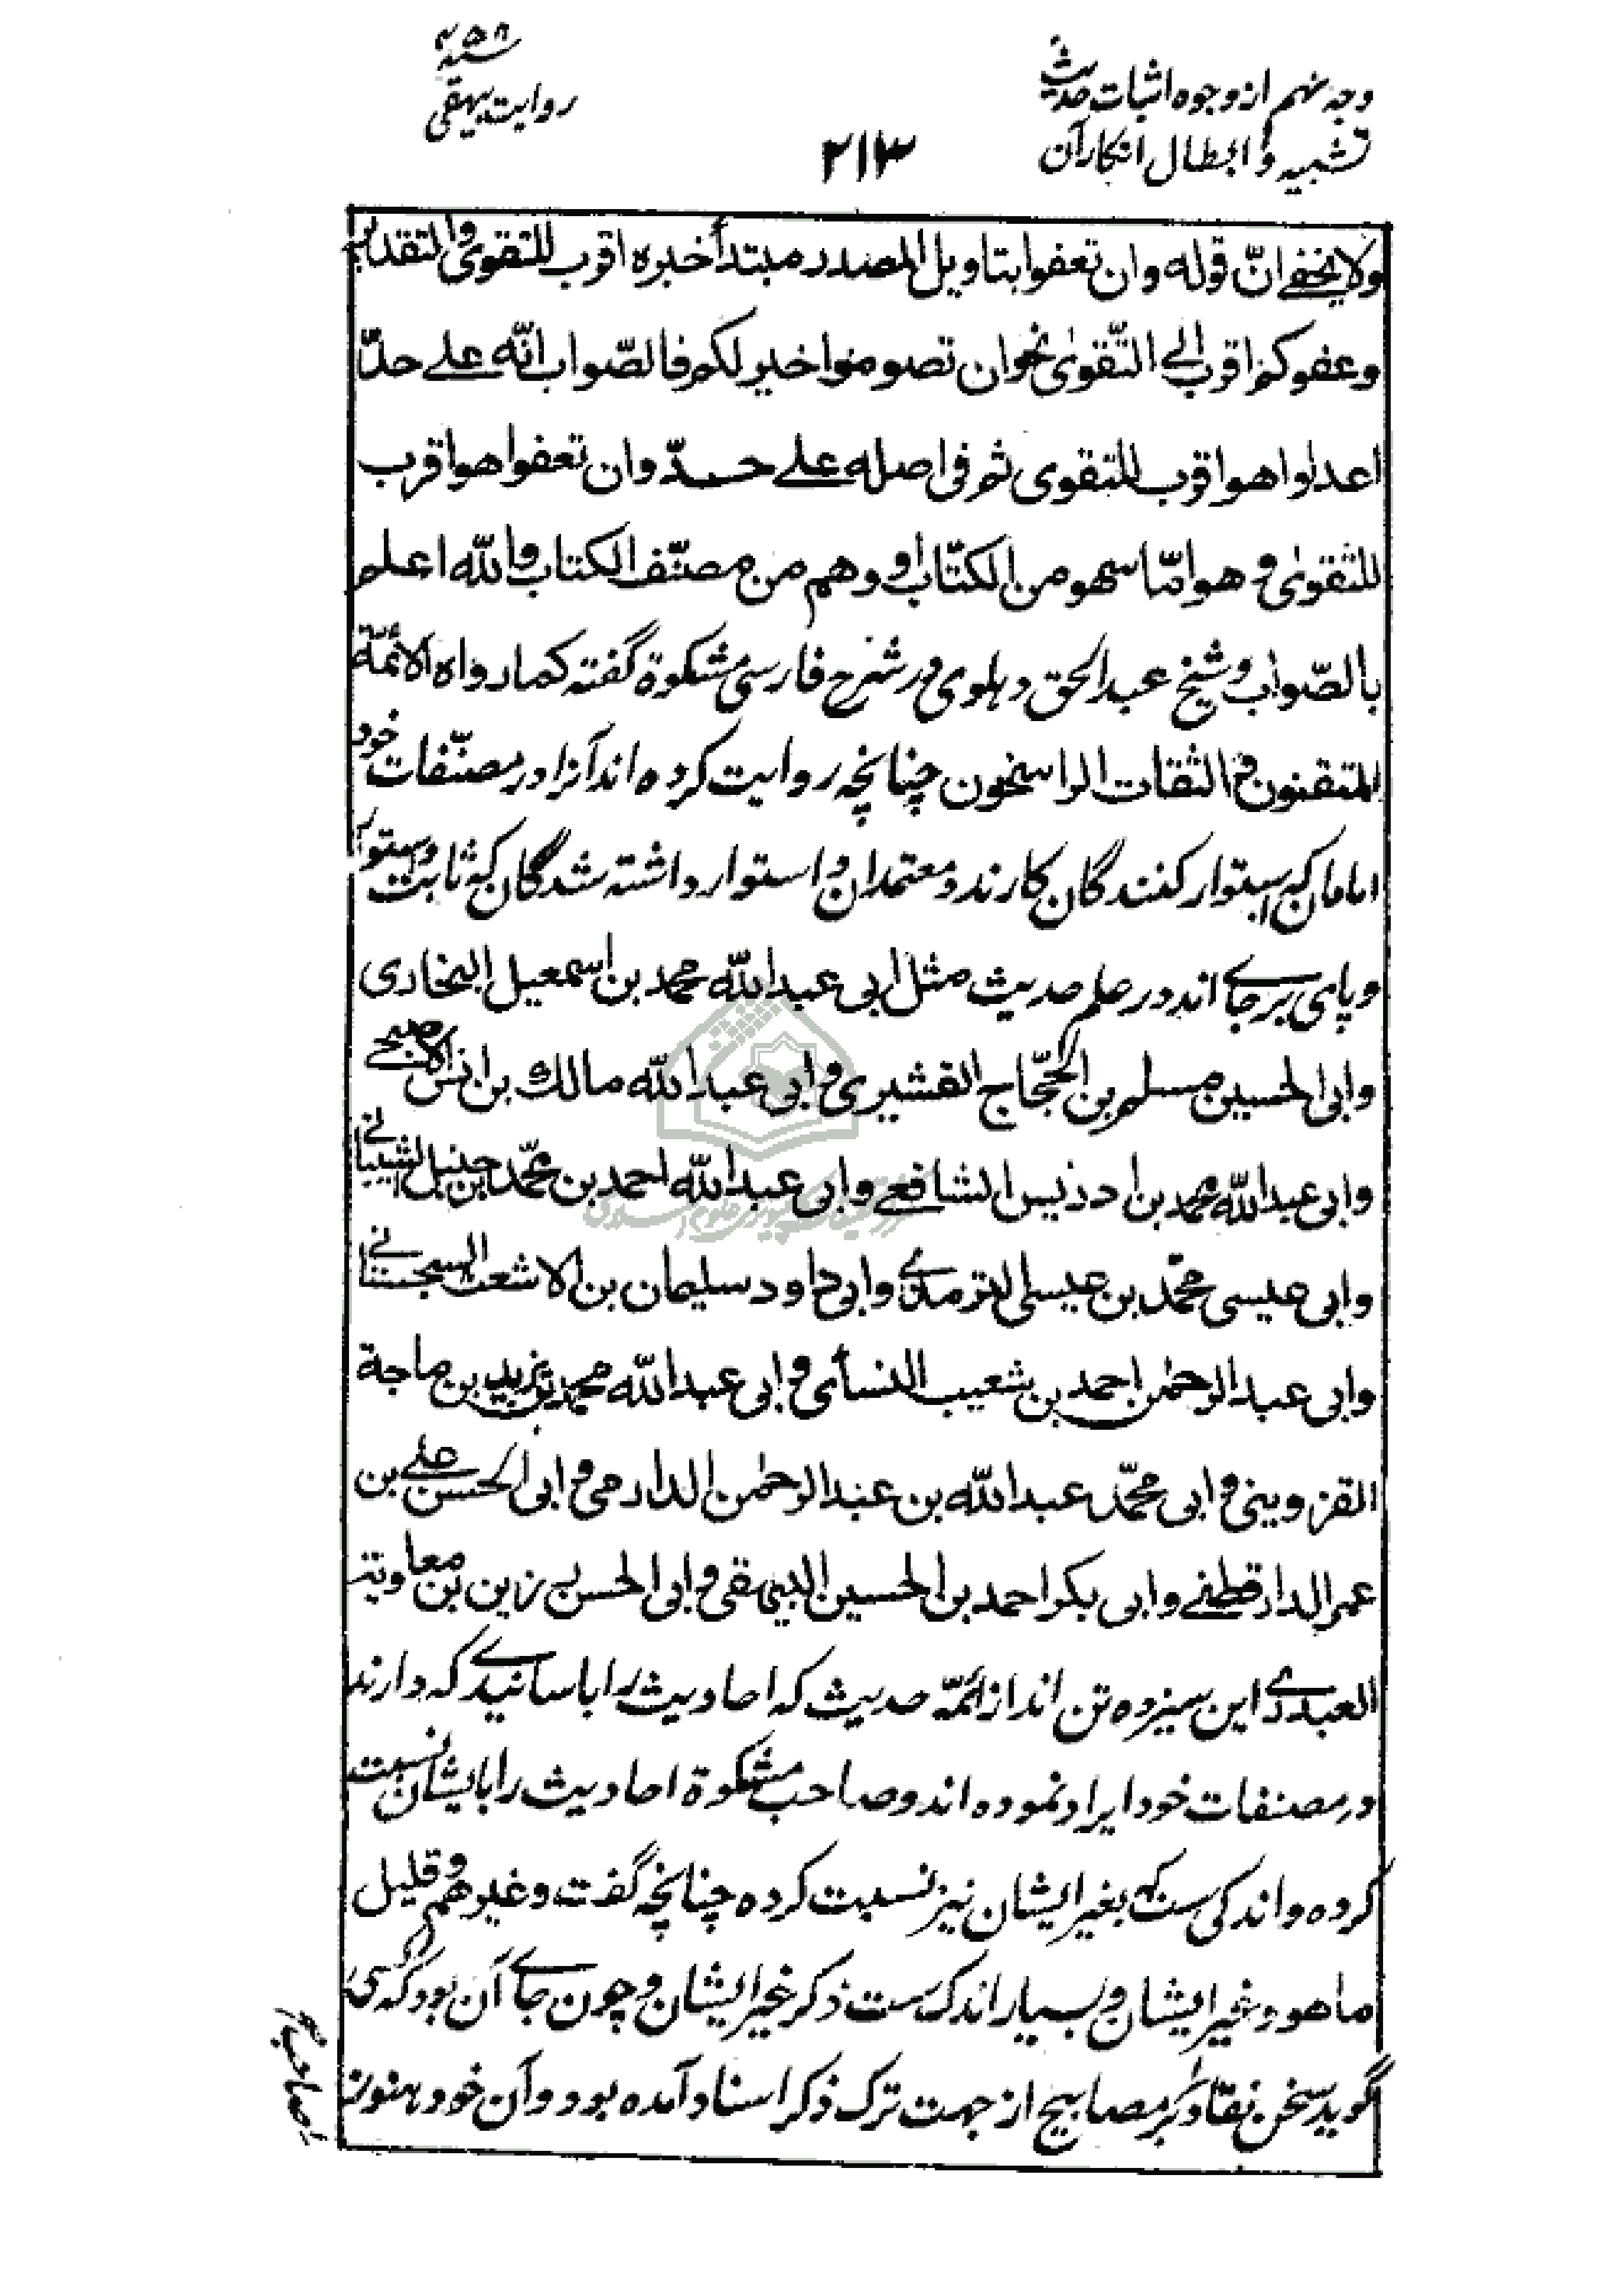 وجه نهم از وجوه اثبات حدیث
تشبیه و ابطال انکار آن
۲۱۳
روایت بیهقی
ولا یخفی انّ قوله وان تعفوا بتاویل المصدر مبتدأ خبره اقرب للتقوی والتقدیر
وعفوکم اقرب الی التّقوی نحو ان تصوموا خیر لکم فالصّواب انّه علی حدّ
اعدلوا هو اقرب للتقوی ثم فی اصله علی حدّ وان تعفوا هو اقرب
للتقوی وهو امّا سهو من الکتّاب او وهم من مصنّف الکتاب والله اعلم
بالصّواب و شیخ عبد الحق دہلوی در شرح فارسی مشکوة گفته کما رواه الائمّة
المتقنون و الثقات الراسخون چنانچه روایت کرده اند آنرا در مصنّفات خود
امامان که استوار کنندگان کارند و معتمدان و استوار داشته شدگان که ثابت و استوار
و پای برجای اند در علم حدیث مثل ابی عبد الله محمد بن اسمعیل البخاری
وابی الحسین مسلم بن الحجّاج القشیری و ابی عبد الله مالك بن انس الاصبحی
وابی عبد الله محمد بن ادریس الشافعی وابی عبد الله احمد بن محمّد بن حنبل الشیبانی
وابی عیسی محمّد بن عیسی الترمذی وابی داود سلیمان بن الاشعث السجستانی
وابی عبد الرحمن احمد بن شعیب النسأی و ابی عبد الله محمد بن یزید بن ماجة
القزوینی و ابی محمّد عبد الله بن عبد الرحمن الدارمی و ابی الحسن علی بن
عمر الدارقطنی وابی بکر احمد بن الحسین البیهقی و ابی الحسن رزین بن معاویة
العبدری این سیزده تن اند از ائمّه حدیث که احادیث را باسانیدی که دارند
در مصنفات خود ایراد نموده اند و صاحب مشکوة احادیث را بایشان نسبت
کرده و اندکی ست که بغیر ایشان نیز نسبت کرده چنانچه گفت وغیرهم وقلیل
ما هو و غیر ایشان و بسیار اندک ست ذکر غیر ایشان و چون جای آن بود که کسی
گوید سخن نقاد بر مصابیح از جهت ترک ذکر اسناد آمده بود و آن خود هنوز